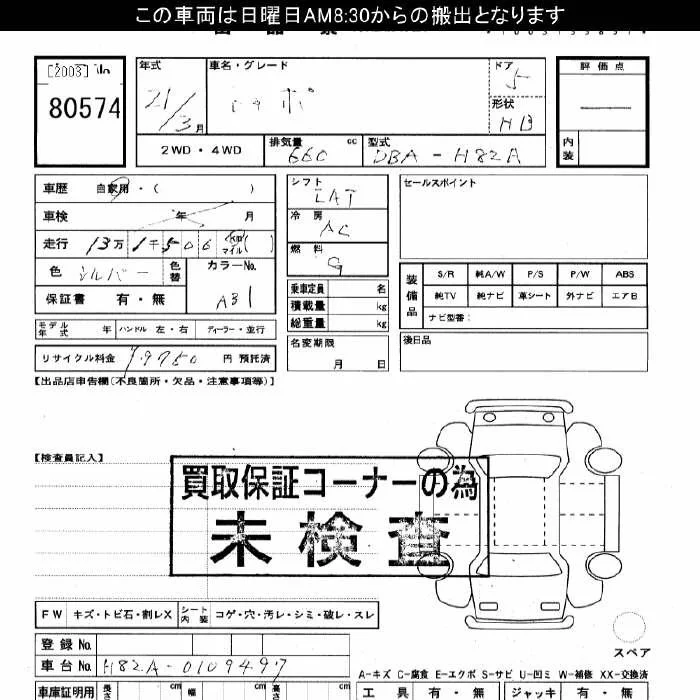 この車両は日曜日AM8:30からの搬出となります
[2003] No
80574
年式
21/3月
車名・グレード
トッポ
ドア
5
形状
HB
評価点
内装
2WD・4WD
排気量
660 cc
型式
DBA-H82A
車歴 自家用・( )
車検 年 月
走行 13万 1千506 km マイル( )
色 シルバー 色替
カラーNo.
A31
保証書 有・無
モデル年式 年 ハンドル 左・右 ディーラー・並行
リサイクル料金 9750 円 預託済
シフト
LAT
冷房
AC
燃料
G
乗車定員 名
積載量 kg
総重量 kg
名変期限
月 日
セールスポイント
装備品
S/R 純A/W P/S P/W ABS
純TV 純ナビ 革シート 外ナビ エアB
ナビ型番:
後日品
【出品店申告欄(不良箇所・欠品・注意事項等)】
【検査員記入】
買取保証コーナーの為
未検査
FW キズ・トビ石・割レX シート内装 コゲ・穴・汚レ・シミ・破レ・スレ
スペア
登録 No.
車台 No. H82A-0109497
車庫証明用 長さ cm 幅 cm 高さ cm
A-キズ C-腐食 E-エクボ S-サビ U-凹ミ W-補修 XX-交換済
工具 有・無 ジャッキ 有・無